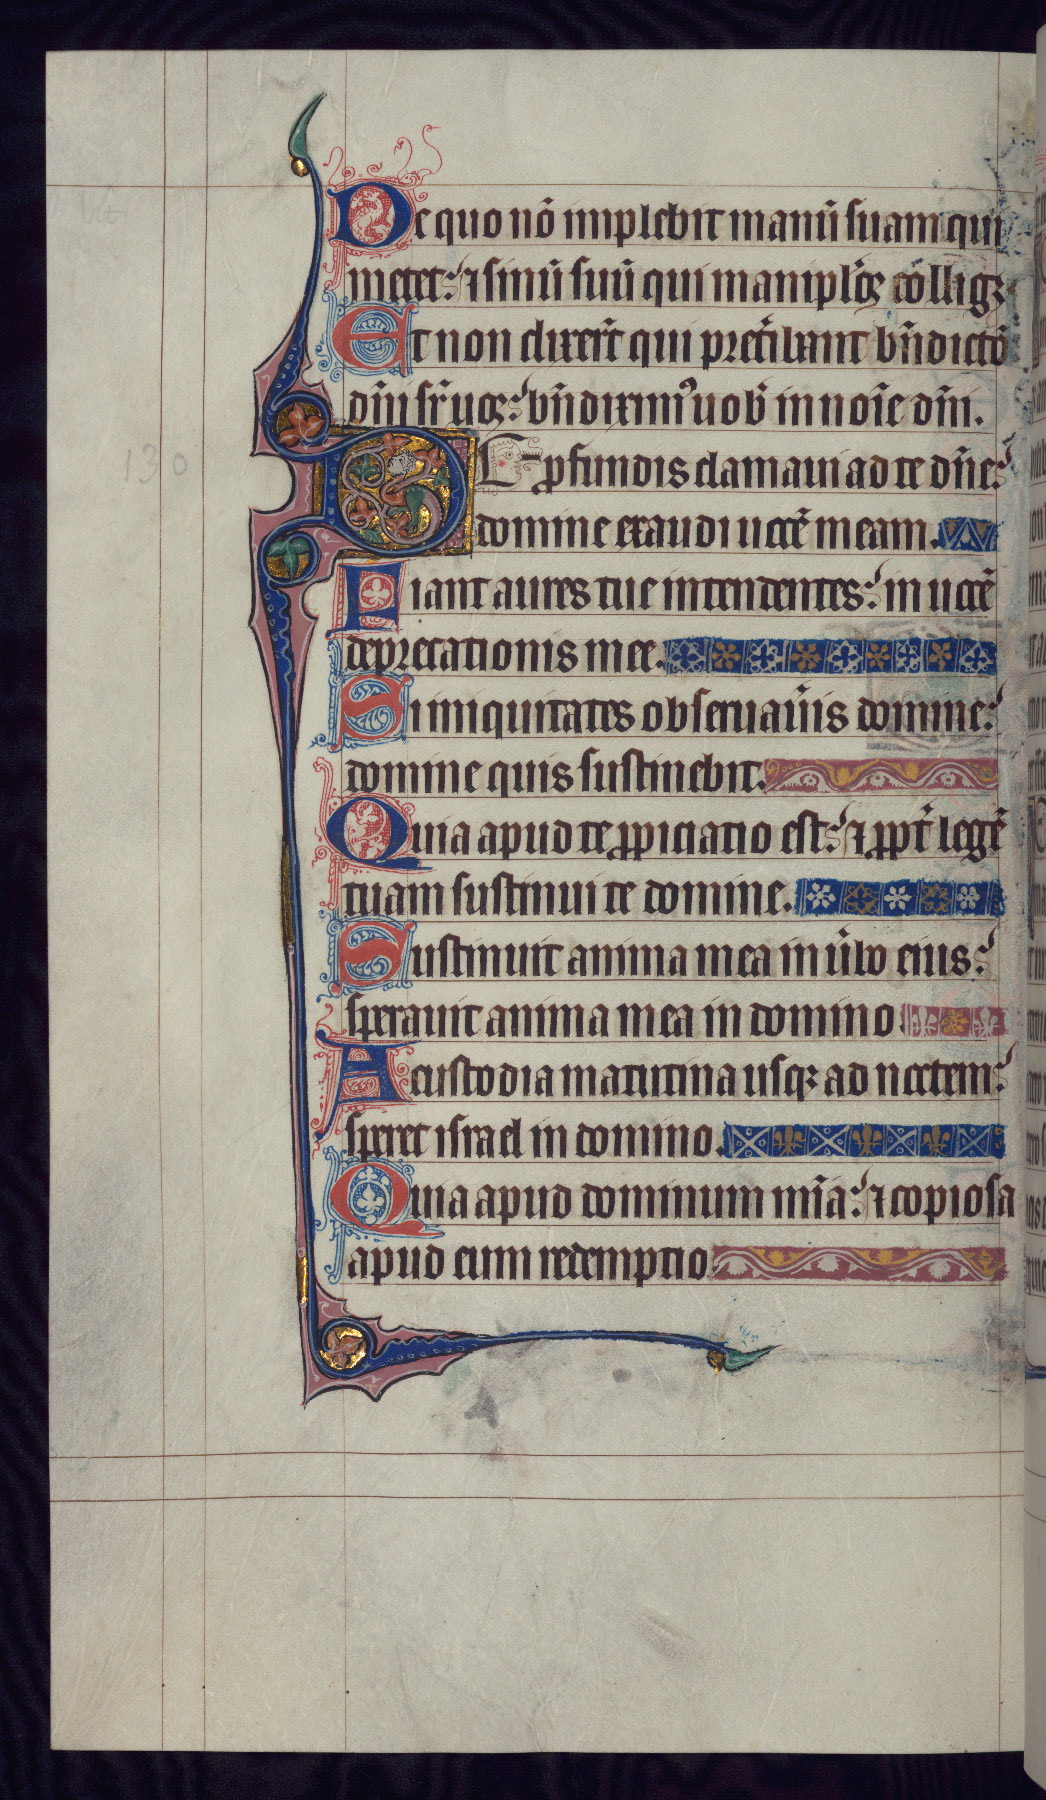 De quo nō implebit manū suam qui
metet: ⁊ sinū suū qui maniplos̄ colligꝫ
Et non dixer̄t qui pret̄ibant bn̄dictō
dn̄i sr̄ uos: bn̄diximꝰ uob̄ in noīe dn̄i.
DE ꝓfundis clamaui ad te dn̄e:
domine exaudi uocē meam.
Fiant aures tue intendentes: in uocē
deprecationis mee.
Si iniquitates obseruau̾is domine:
domine quis sustinebit.
Quia apud te ꝓpiciatio est: ⁊ ꝓpt̄ legē
tuam sustinui te domine.
Sustinuit anima mea in u̾bo eius:
sperauit anima mea in domino
A custodia matutina usqꝫ ad noctem:
speret israel in domino.
Quia apud dominum mīa: ⁊ copiosa
apud eum redemptio.
130